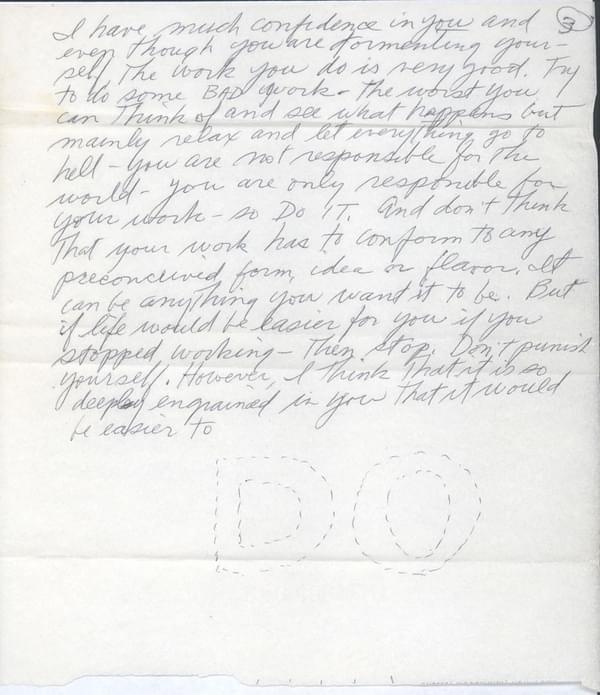 3
I have much confidence in you and
even though you are tormenting your-
self, the work you do is very good. Try
to do some BAD work - the worst you
can think of and see what happens but
mainly relax and let everything go to
hell - you are not responsible for the
world - you are only responsible for
your work - so DO IT. And don't think
that your work has to conform to any
preconceived form, idea or flavor. It
can be anything you want it to be. But
if life would be easier for you if you
stopped working - then stop. Don't punish
yourself. However, I think that it is so
deeply engrained in you that it would
be easier to
DO